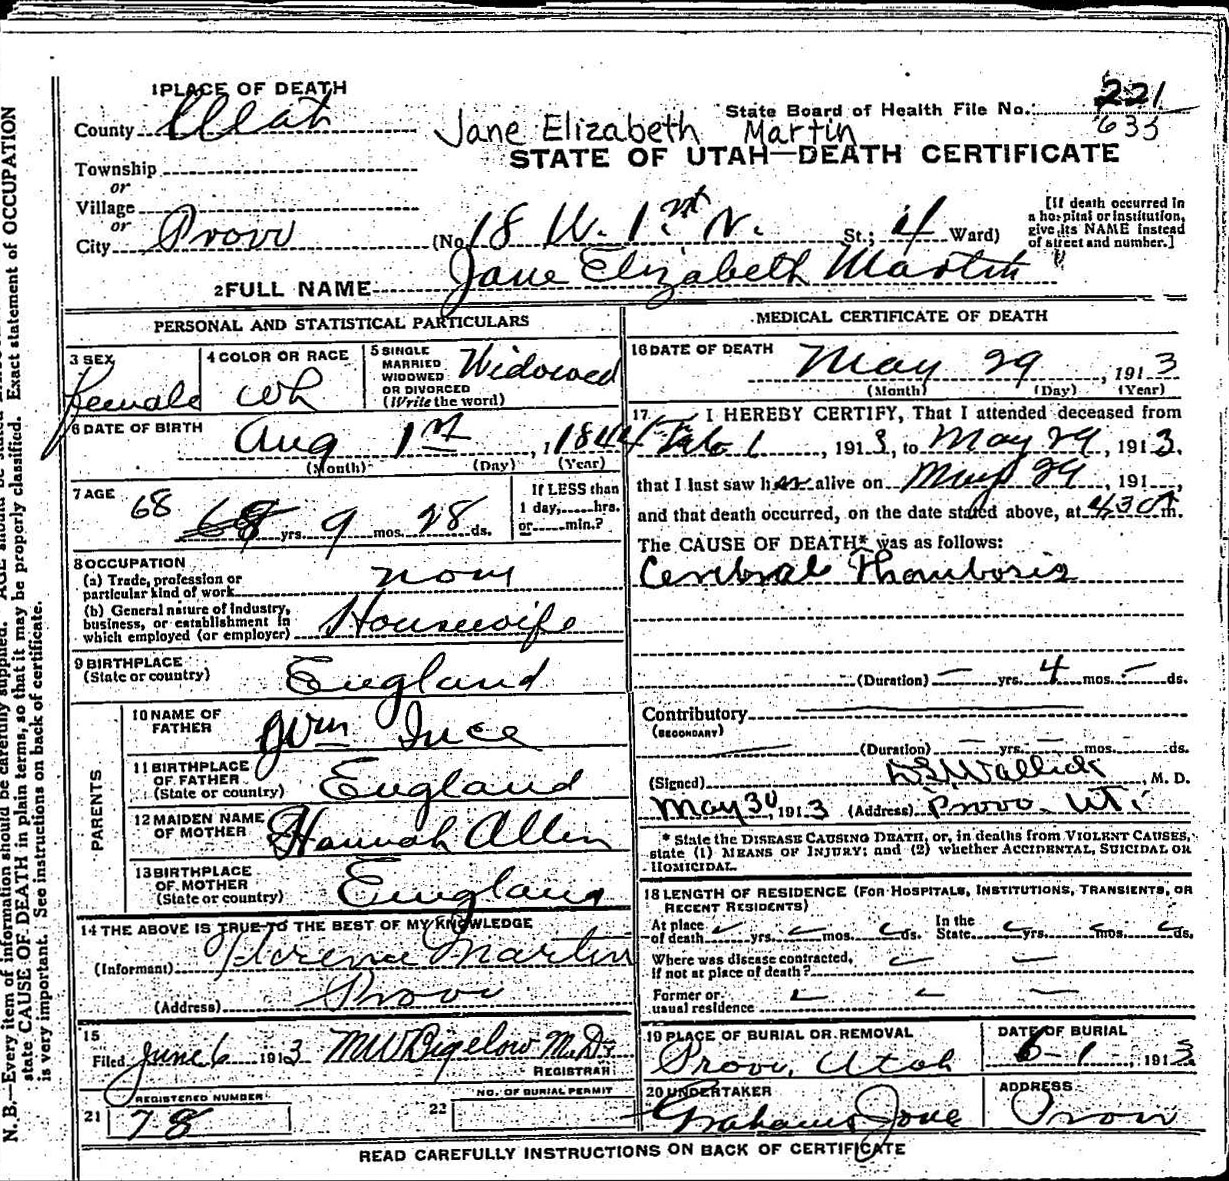 N.B.—Every item of information should be carefully supplied. AGE should be stated EXACTLY. Exact statement of OCCUPATION
state CAUSE OF DEATH in plain terms, so that it may be properly classified.
is very important. See instructions on back of certificate.
1 PLACE OF DEATH
County Utah
State Board of Health File No. 221
633
Jane Elizabeth Martin
STATE OF UTAH—DEATH CERTIFICATE
Township
or
Village
or
City Provo
(No. 18 W. 1st N. St.; 4 Ward)
[If death occurred in
a hospital or institution,
give its NAME instead
of street and number.]
2 FULL NAME Jane Elizabeth Martin
PERSONAL AND STATISTICAL PARTICULARS
3 SEX
Female
4 COLOR OR RACE
Wh
5 SINGLE
MARRIED
WIDOWED
OR DIVORCED
(Write the word)
Widowed
6 DATE OF BIRTH
Aug 1st, 1844
(Month) (Day) (Year)
7 AGE
68 68 yrs 9 mos. 28 ds.
If LESS than
1 day, hrs.
or min.?
8 OCCUPATION
(a) Trade, profession or
particular kind of work none
(b) General nature of industry,
business, or establishment in
which employed (or employer) Housewife
9 BIRTHPLACE
(State or country) England
PARENTS
10 NAME OF
FATHER Wm Ince
11 BIRTHPLACE
OF FATHER
(State or country) England
12 MAIDEN NAME
OF MOTHER Hannah Allen
13 BIRTHPLACE
OF MOTHER
(State or country) England
14 THE ABOVE IS TRUE TO THE BEST OF MY KNOWLEDGE
(Informant) Florence Martin
(Address) Provo
15
Filed June 6 1913 M W Bigelow M.D.
REGISTRAR
REGISTERED NUMBER
21 78
NO. OF BURIAL PERMIT
22
MEDICAL CERTIFICATE OF DEATH
16 DATE OF DEATH
May 29, 1913
(Month) (Day) (Year)
17 I HEREBY CERTIFY, That I attended deceased from
Feb 1, 1913, to May 29, 1913.
that I last saw her alive on May 29, 191,
and that death occurred, on the date stated above, at 4:30 A m.
The CAUSE OF DEATH* was as follows:
Cerebral Thombosis
(Duration) — yrs. 4 mos. — ds.
Contributory
(SECONDARY)
(Duration) — yrs. — mos. ds.
(Signed) Wallick, M. D.
May 30, 1913 (Address) Provo Ut.
* State the DISEASE CAUSING DEATH, or, in deaths from VIOLENT CAUSES,
state (1) MEANS OF INJURY; and (2) whether ACCIDENTAL, SUICIDAL OR
HOMICIDAL.
18 LENGTH OF RESIDENCE (FOR HOSPITALS, INSTITUTIONS, TRANSIENTS, OR
RECENT RESIDENTS)
At place
of death yrs. mos. ds.
In the
State yrs. mos. ds.
Where was disease contracted,
if not at place of death?
Former or
usual residence
19 PLACE OF BURIAL OR REMOVAL
Provo, Utah
DATE OF BURIAL
6-1-, 1913
20 UNDERTAKER
ADDRESS
Provo
READ CAREFULLY INSTRUCTIONS ON BACK OF CERTIFICATE